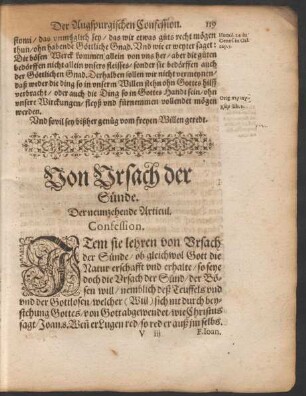 Der Augspurgischen Confession. 119
stomi / das unmüglich sey / das wir etwas guts recht mögen
thun / ohn habende Göttliche Gnad. Und wie er weyter saget:
Die bösen Werck kommen allein von uns her / aber die guten
bedörffen nicht allein unsers fleisses / sonder sie bedörffen auch
der Göttlichen Gnad. Derhalben sollen wir nicht vermeynen /
daß weder die ding so in unserm Willen stehn ohn Gottes hilff
verbracht / oder auch die Ding so in Gottes Handt sein / ohn
unsere Wirckungen / fleyß und fürnemmen vollendet mögen
werden.
Und sovil sey bißher genüg vom freyen Willen geredt.
Von Ursach der
Sünde.
Der neunzehende Articul.
Confession.
ITem sie lehren von Ursach
der Sünde / ob gleichwol Gott die
Natur erschafft und erhalte / so seye
doch die Ursach der Sünd / der Bö-
sen will / nemblich deß Teuffels und
und der Gottlosen / welcher (Will) sich nit durch bey-
stehung Gottes / von Gott abgewendet / wie Christus
sagt Joan. 8. Wen er Lugen red / so red er auß im selbs.
V iij F. Joan.